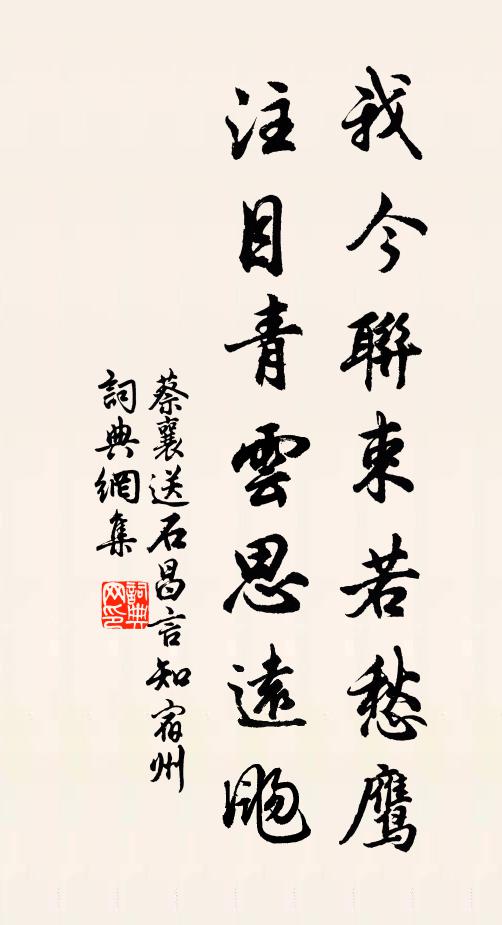 我今聯束若愁鷹
注目青雲思遠颺
蔡襄送石昌言知宿州
詞典網集
詞典网印